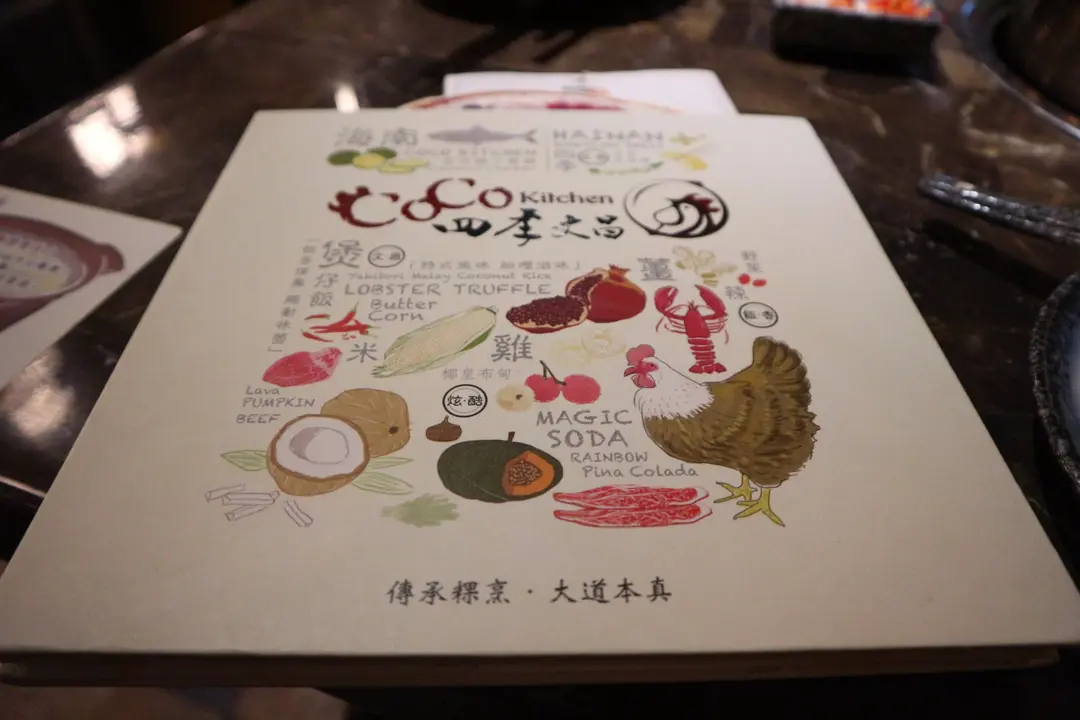 海南
HAINAN
CoCo Kitchen
四季文昌
煲仔飯
文昌
Malay Coconut Rice
LOBSTER TRUFFLE
Butter
Corn
薑
辣
米
雞
椰皇布甸
炫·酷
Lava
PUMPKIN
BEEF
MAGIC
SODA
RAINBOW
Pina Colada
傳承粿烹·大道本真